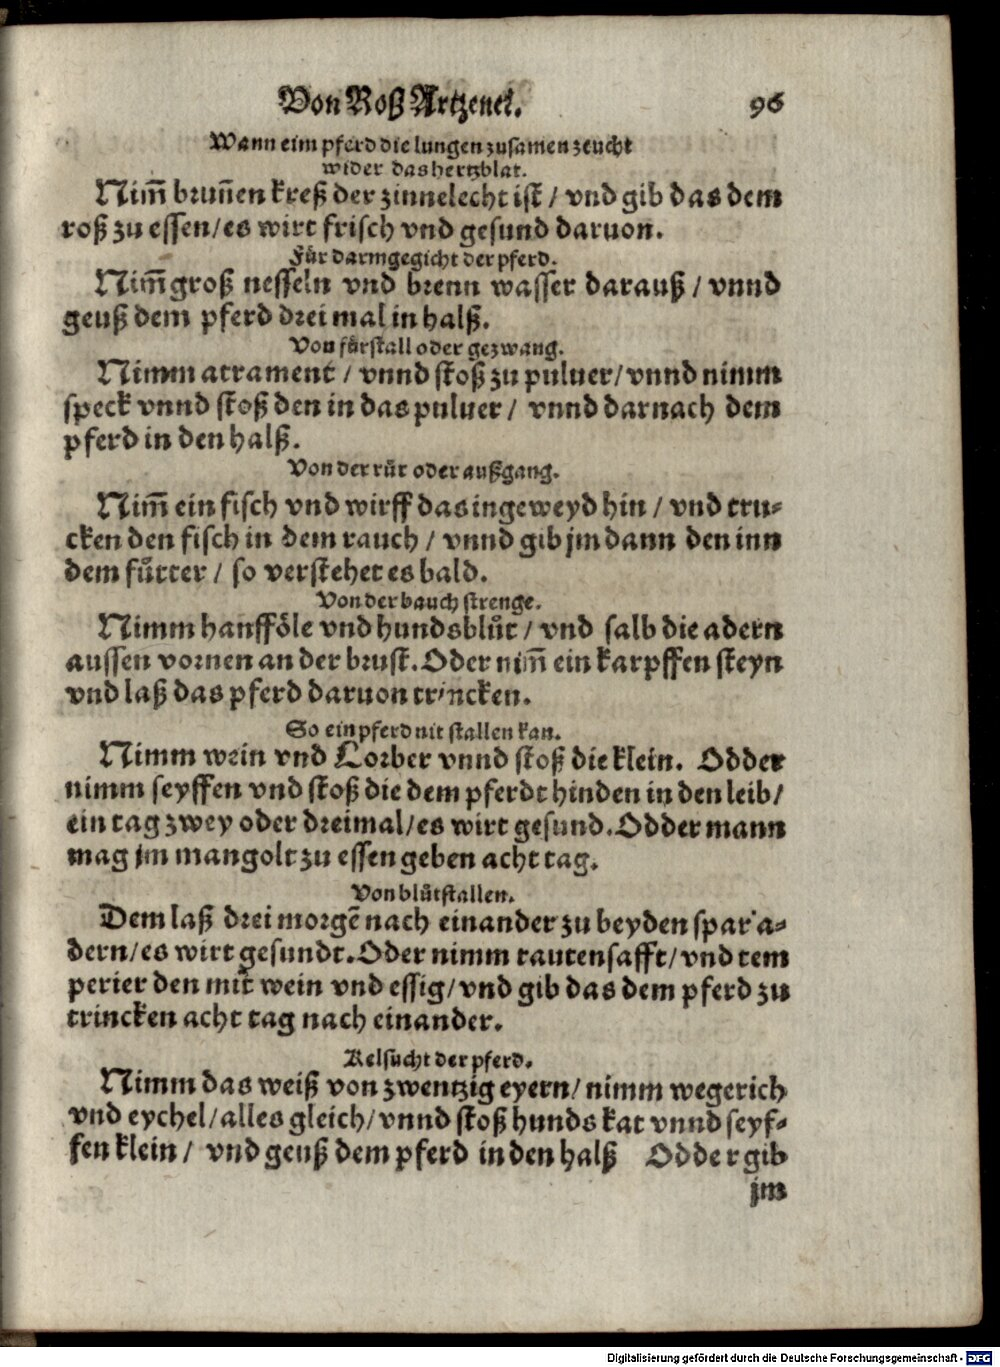 Von Roß Artzenei. 96
Wann eim pferd die lungen zusamen zeucht
wider das hertzblat.
Nim̃ brun̄en kreß der zinnelecht ist / vnd gib das dem
roß zu essen/es wirt frisch vnd gesund daruon.
Fuͤr darmgegicht der pferd.
Nim̃ groß nesseln vnd brenn wasser darauß / vnnd
geuß dem pferd drei mal in halß.
Von fuͤrstall oder gezwang.
Nimm atrament / vnnd stoß zu puluer/ vnnd nimm
speck vnnd stoß den in das puluer / vnnd darnach dem
pferd in den halß.
Von der ruͤr oder außgang.
Nim̃ ein fisch vnd wirff das ingeweyd hin / vnd tru-
cken den fisch in dem rauch / vnnd gib jm dann den inn
dem fuͤtter / so verstehet es bald.
Von der bauch strenge.
Nimm hanffoͤle vnd hundsbluͤt / vnd salb die adern
aussen vornen an der brust. Oder nim̃ ein karpffen steyn
vnd laß das pferd daruon trincken.
So ein pferd nit stallen kan.
Nimm wein vnd Lorber vnnd stoß die klein. Odder
nimm seyffen vnd stoß die dem pferdt hinden in den leib/
ein tag zwey oder dreimal/es wirt gesund. Odder mann
mag jm mangolt zu essen geben acht tag.
Von bluͤtstallen.
Dem laß drei morgẽ nach einander zu beyden spar a-
dern/es wirt gesundt. Oder nimm rautensafft/vnd tem
perier den mit wein vnd essig/vnd gib das dem pferd zu
trincken acht tag nach einander.
Kelsucht der pferd.
Nimm das weiß von zwentzig eyern/ nimm wegerich
vnd eychel/alles gleich/vnnd stoß hunds kat vnnd seyf-
fen klein / vnd geuß dem pferd in den halß Odder gib
jm
Digitalisierung gefördert durch die Deutsche Forschungsgemeinschaft - DFG